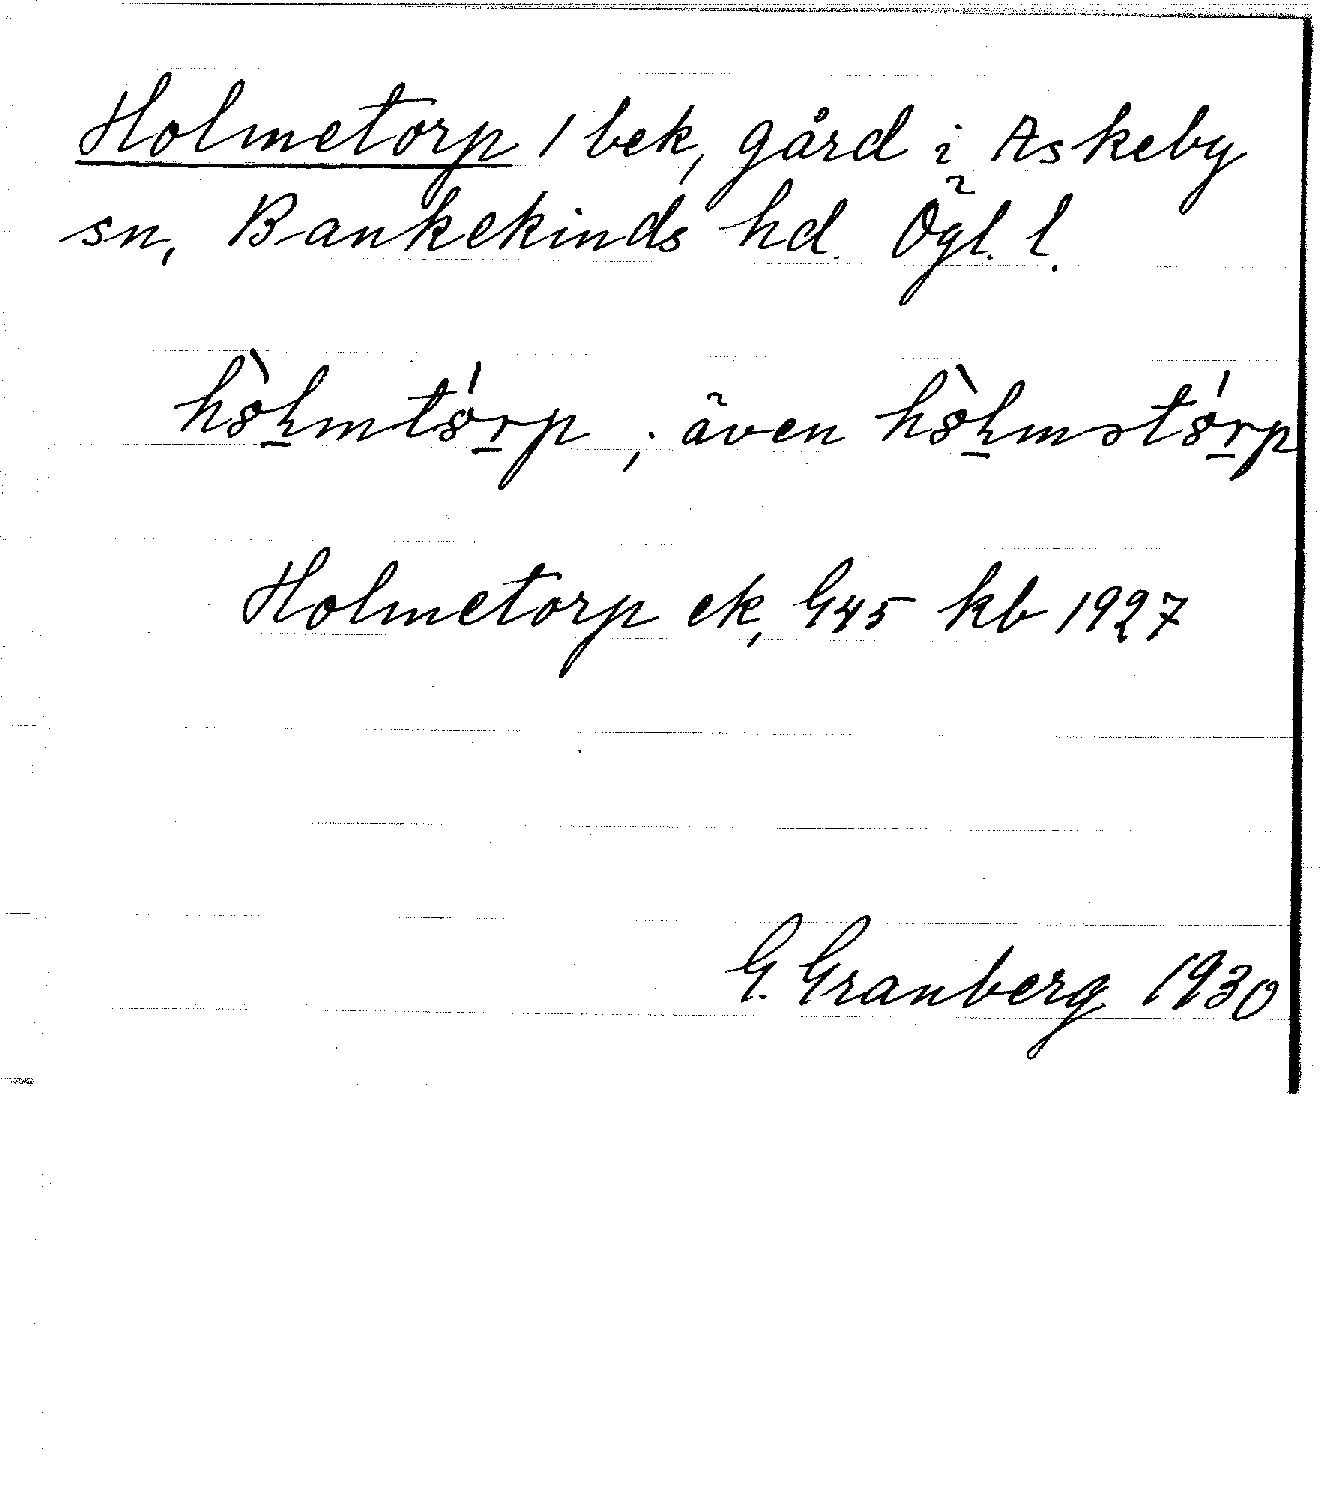 Holmetorp 1 bek, gård i Askeby
sn, Bankekinds hd. Ögl. l.
även
Holmetorp ek, G45 kb 1927
G. Granberg 1930